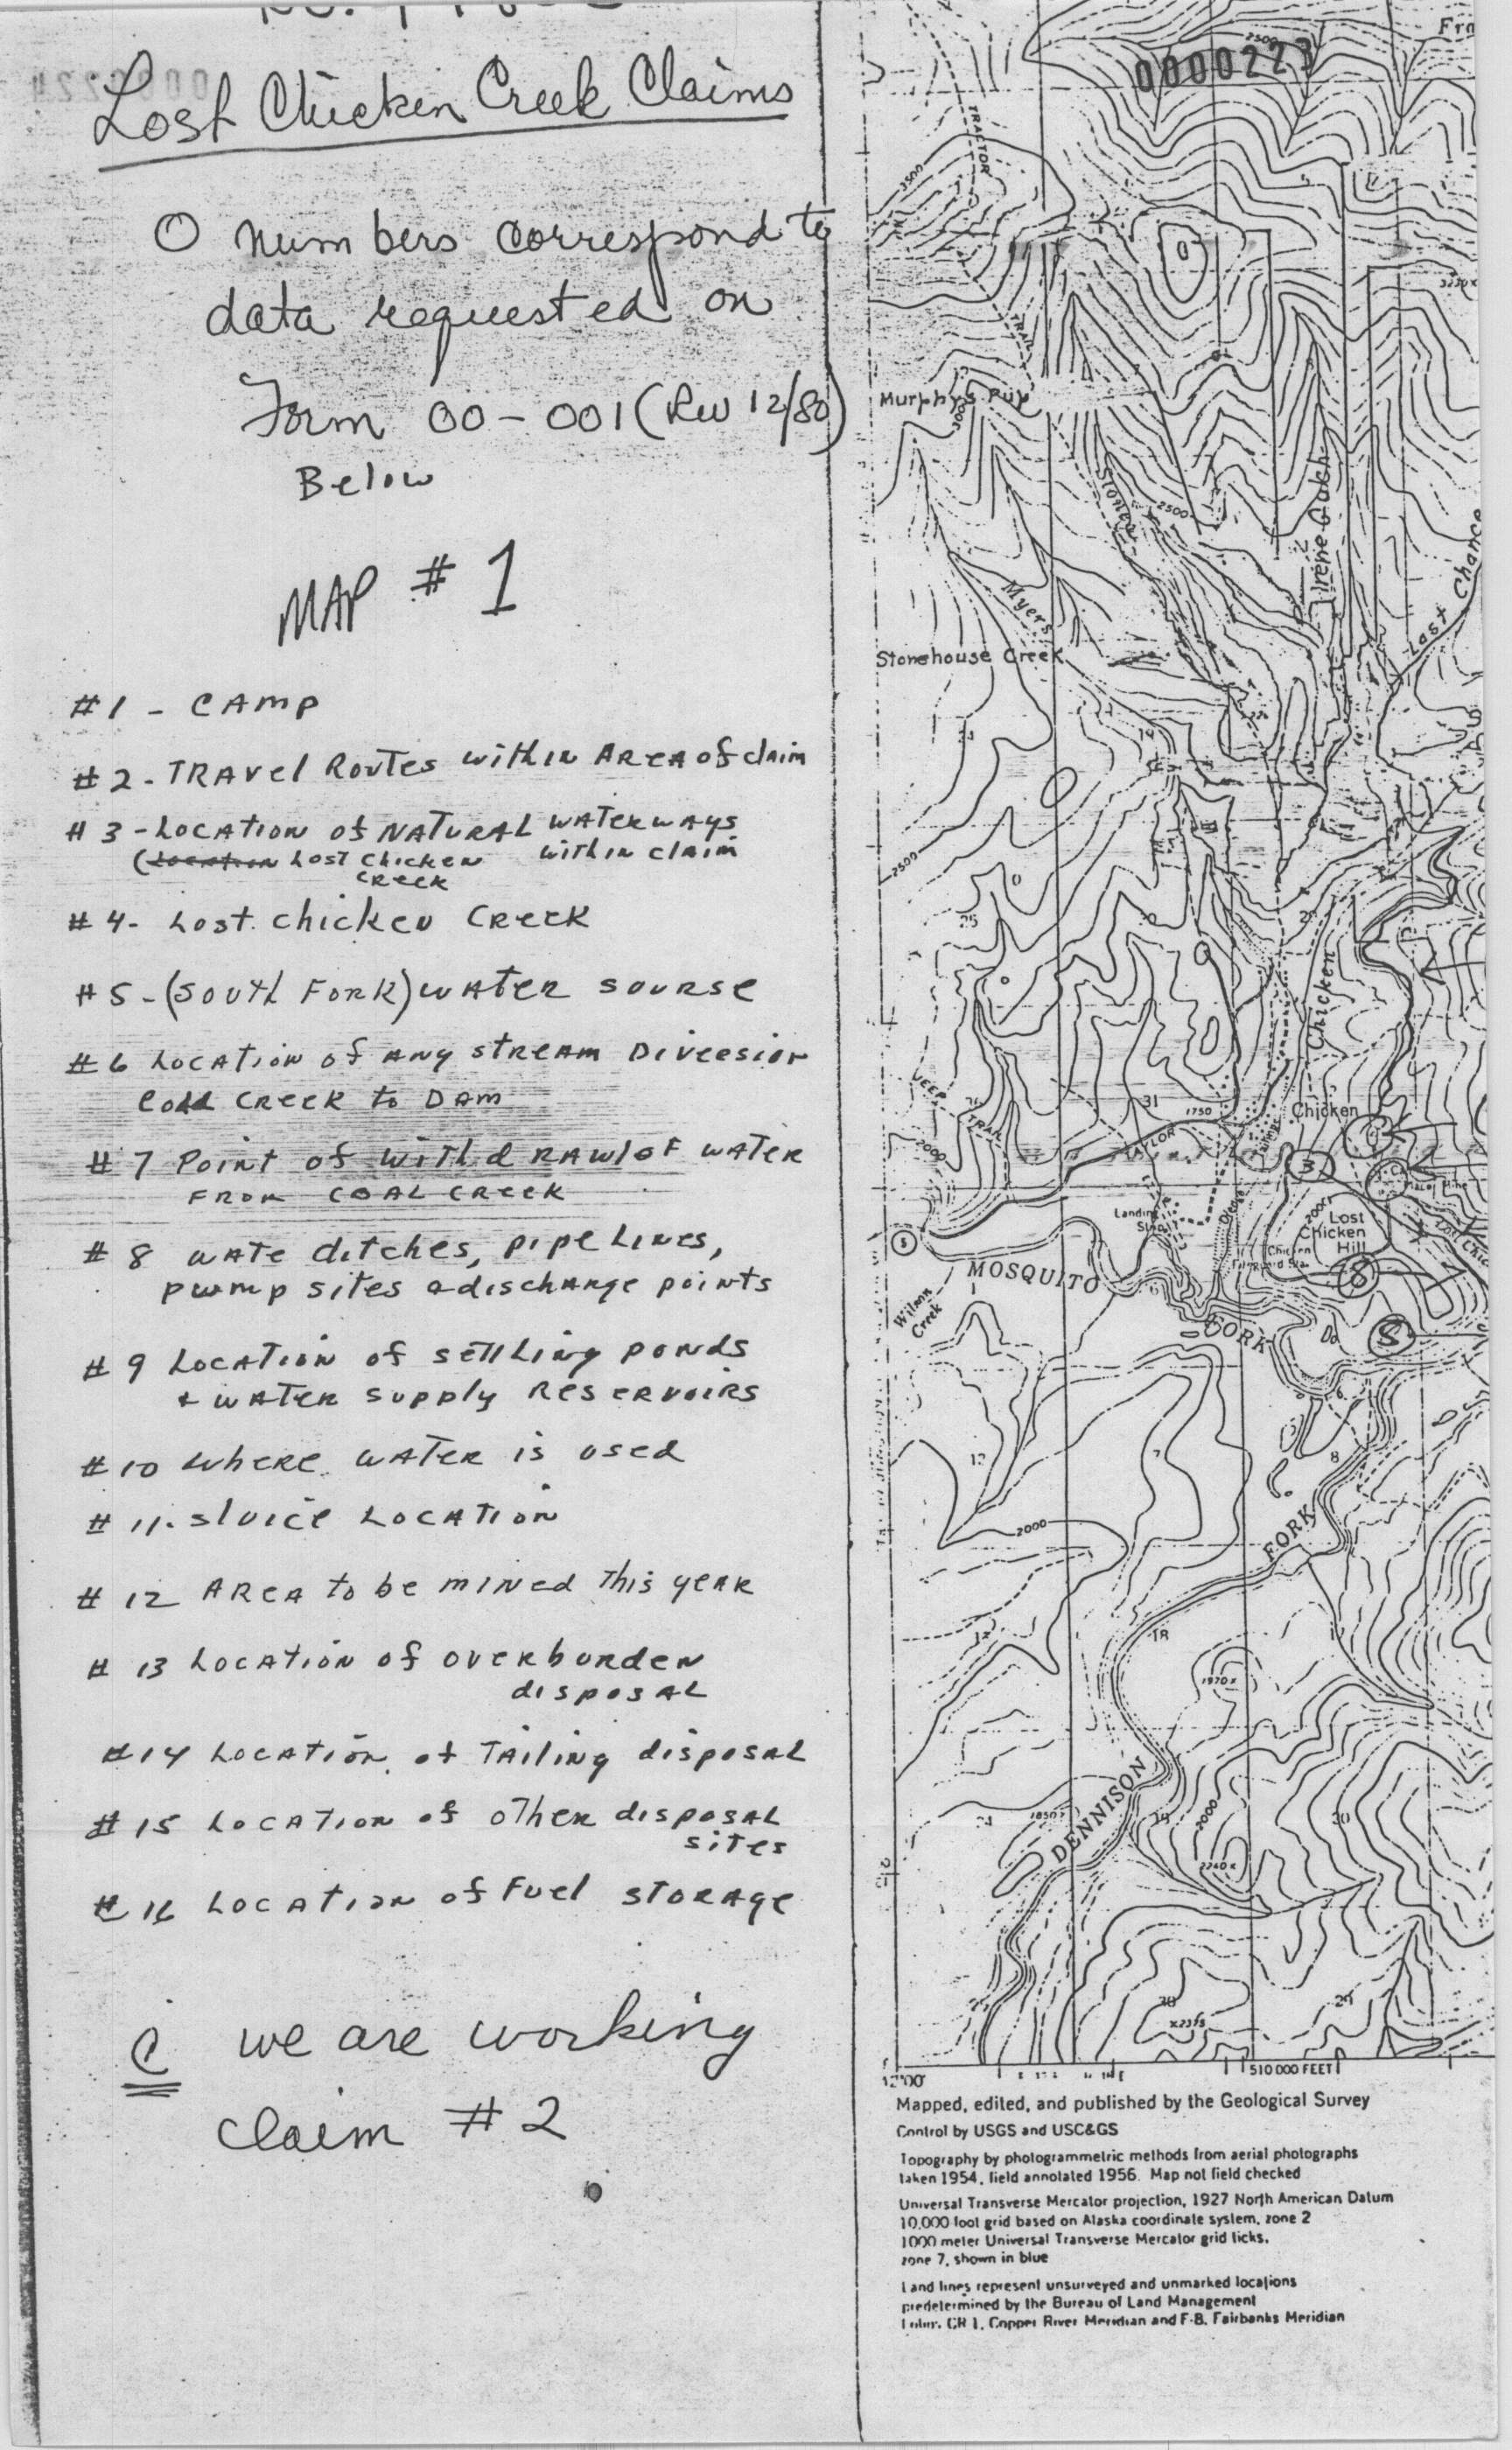 Lost Chicken Creek Claims
O Numbers correspond to
data requested on
Form 00-001 (Rev 12/80)
Below
MAP # 1
#1 - CAMP
#2 - TRAVEL Routes within AREA of claim
#3 - LOCATION of NATURAL WATERWAYS
(Location LOST Chicken within claim
CREEK
#4 - Lost Chicken Creek
#5 - (South Fork) WATER SOURSE
#6 LOCATION of ANY STREAM Diversion
CREEK to DAM
#7 Point of WITHdRAWl OF WATER
FROM COAL CREEK
#8 WATE ditches, pipe Lines,
pump sites & dischange points
#9 LOCATION of settling ponds
+ WATER supply RESERVOIRS
#10 WHERE WATER is used
#11. Sluice LOCATION
#12 AREA to be mined This yeAR
#13 LOCATION of overburden
disposAL
#14 LOCATION of TAiling disposAL
#15 LOCATION of other disposAL
sites
#16 LOCATION of Fuel STORAGE
C we are working
Claim #2
0000223
2500
TRACTOR
3500
TRAIL
Murphys Pup
Stonehouse Creek
Myers
2500
Irene Gulch
Last Chance
2500
25
Chicken
JEEP TRAIL
31
1750
TAYLOR
Chicken
2000
3
Landing
Strip
2000
Lost
Chicken
Hill
8
5
MOSQUITO
FORK
Wilson
Creek
5
8
7
12
2000
FORK
18
1970x
DENNISON
1850
19
2000
20
2240x
29
x2375
510 000 FEET
Mapped, edited, and published by the Geological Survey
Control by USGS and USC&GS
Topography by photogrammetric methods from aerial photographs
taken 1954, field annotated 1956. Map not field checked
Universal Transverse Mercator projection, 1927 North American Datum
10,000 foot grid based on Alaska coordinate system, zone 2
1000 meter Universal Transverse Mercator grid ticks,
zone 7, shown in blue
Land lines represent unsurveyed and unmarked locations
predetermined by the Bureau of Land Management
CR 1, Copper River Meridian and F-B, Fairbanks Meridian